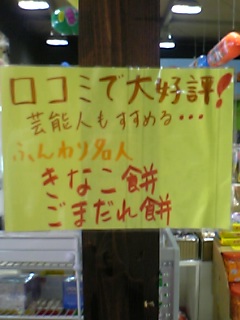 口コミで大好評!
芸能人もすすめる・・・
ふんわり名人
きなこ餅
ごまだれ餅